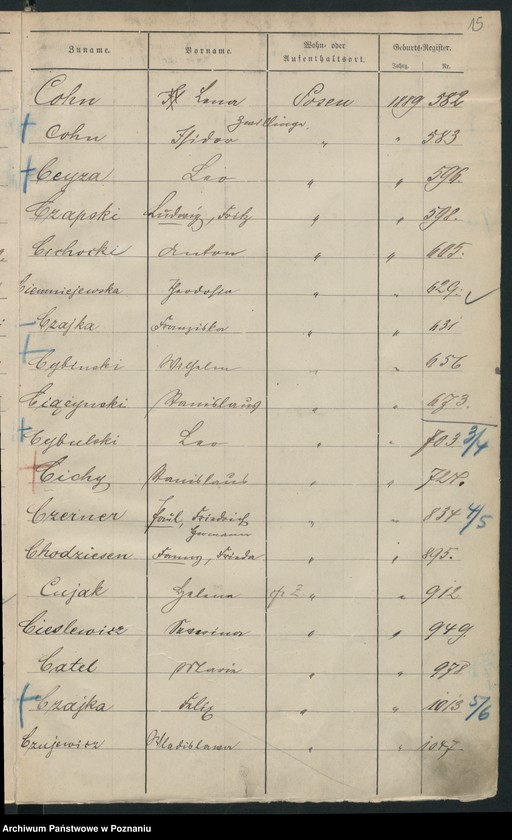 15
Zuname. Vorname. Wohn- oder Aufenthaltsort. Geburts-Register.
Jahrg. Nr.
Cohn Lena Posen 1889 582
Zwillinge.
Cohn Isidor " " 583
Ceyza Leo " " 596
Czapski Ludwig, Fritz " " 598.
Cichocki Anton " " 605.
Ciemniejewska Theodosia " " 629.
Czajka Franziska " " 631
Cybinski Wilhelm " " 656
Stanislaus " " 673.
Cybulski Leo " " 703. 3/4
Cichy Stanislaus " " 724.
Czerner Paul, Friedrich " " 834 4/5
Hermann
Chodziesen Fanny, Frieda " " 895.
Cujak Helena " " 912
Cieslewicz Severina " " 949.
Catel Maria " " 978
Czajka Felix " " 1013. 5/6
Czujewicz Wladislawa " " 1047.
Archiwum Państwowe w Poznaniu